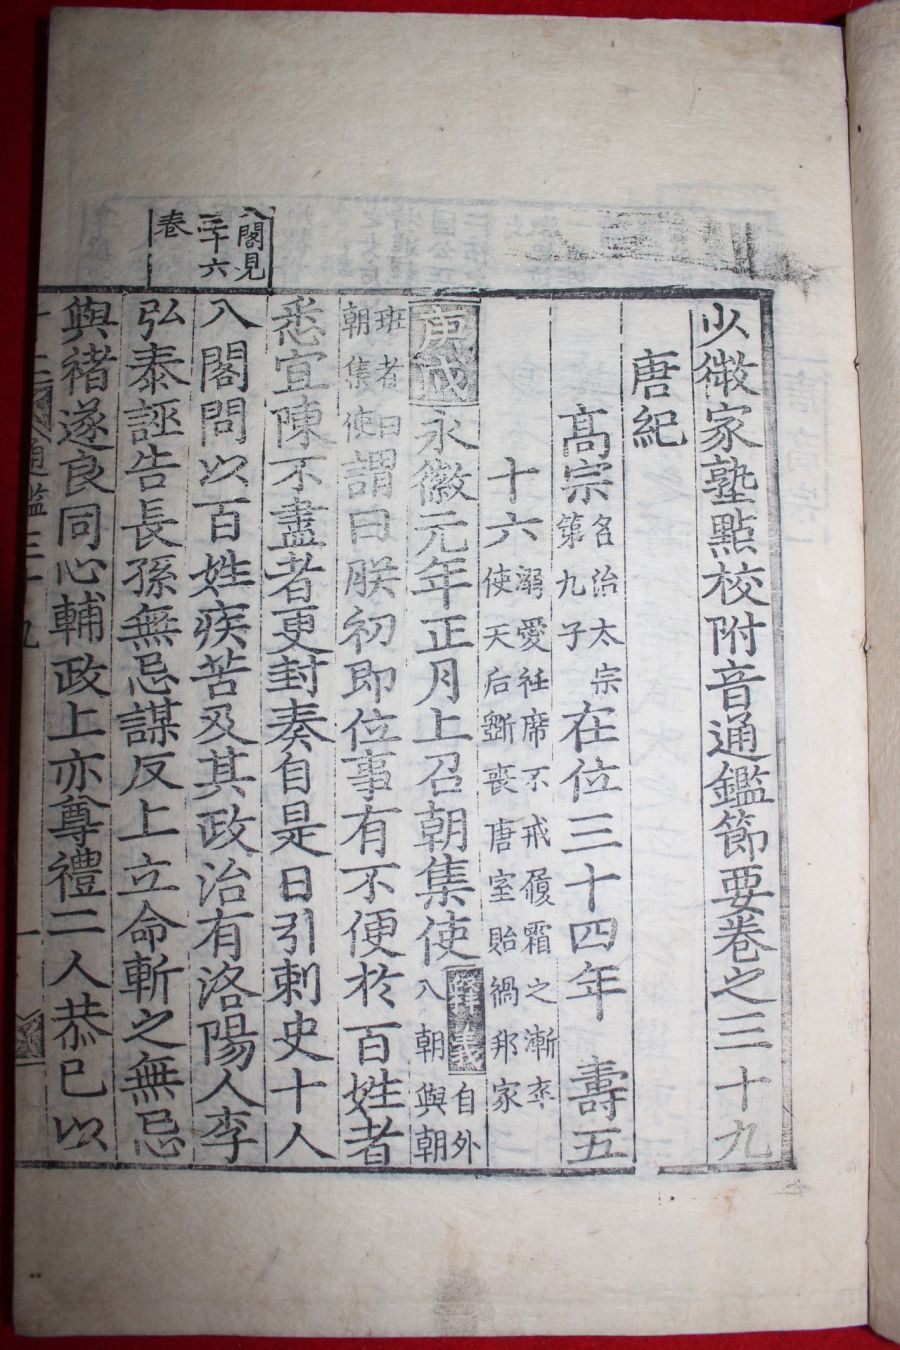 少微家塾點校附音通鑑節要卷之三十九
唐紀
高宗 名治太宗第九子 在位三十四年 壽五
十六 溺愛衽席不戒履霜之漸卒使天后斵喪唐室貽禍邦家
庚戌 永徽元年正月上召朝集使 釋義 自外入朝與朝
班者曰朝集使 謂曰朕初即位事有不便於百姓者
悉宜陳不盡者更封奏自是日引刺史十人
入閤問以百姓疾苦及其政治有洛陽人李
弘泰誣告長孫無忌謀反上立命斬之無忌
與禇遂良同心輔政上亦尊禮二人恭已以
入閤見
三十六
卷
通鑑三十九